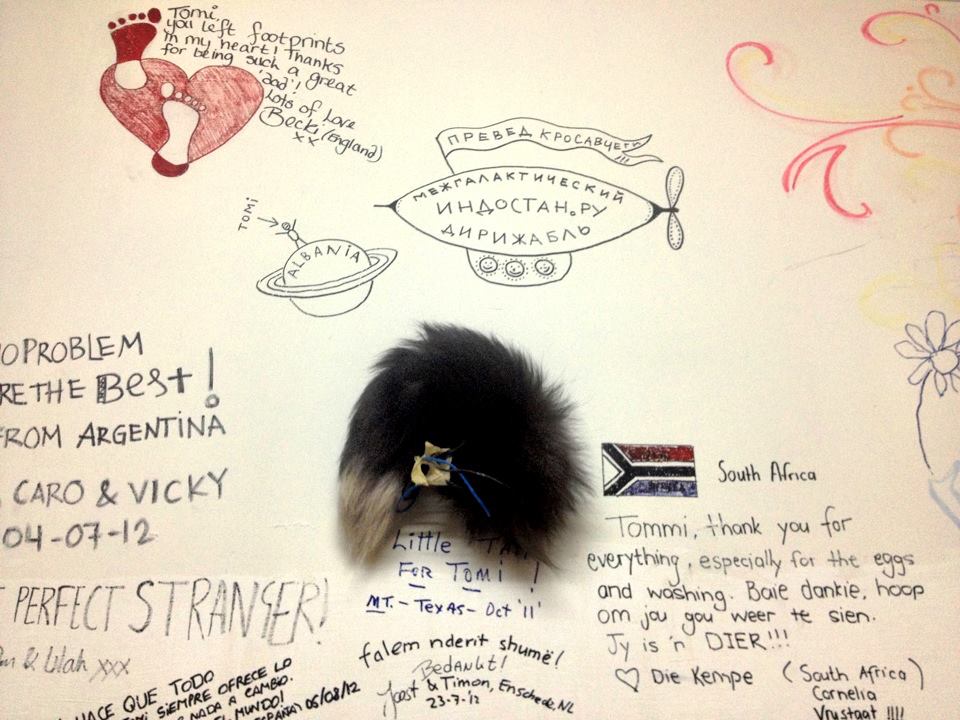 Tomi,
you left footprints
in my heart! Thanks
for being such a great
'dad'!
Lots of love
Becki (England)
xx
ПРЕВЕД КРОСАВЧЕГИ !!!
МЕЖГАЛАКТИЧЕСКИЙ
ИНДОСТАН.РУ
ДИРИЖАБЛЬ
TOMi
ALBANiA
OPROBLEM
RE THE BEST!
FROM ARGENTINA
CARO & VICKY
04-07-12
PERFECT STRANGER!
& lilah xxx
HACE QUE TODO
SIEMPRE OFRECE LO
NADA A CAMBIO.
EL MUNDO!
05/08/12
Little
FOR TOMi !
MT. - TEXAS - Oct '11
falem nderit shumë!
Bedankt!
Joost & Timon, Enschede, NL
23-7-12
South Africa
Tommi, thank you for
everything, especially for the eggs
and washing. Baie dankie, hoop
om jou gou weer te sien.
Jy is 'n DIER!!!
Die Kempe (South Africa)
Cornelia
Vrystaat !!!!